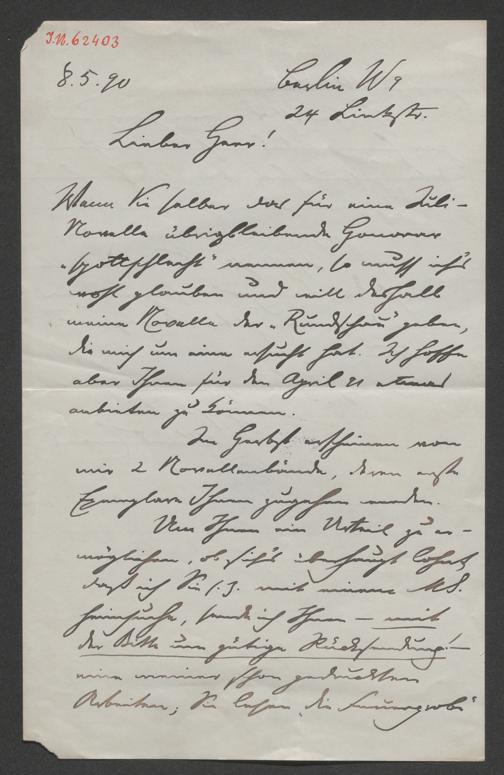 I.N. 62403
8.5.90 Berlin W9
24 Linkstr.
Lieber Herr!
Wenn Sie selber das für eine Juli-
Novelle übrigbleibende Honorar
„spottschlecht" nennen, so muß ich's
wohl glauben und will deshalb
meine Novelle der „Rundschau" geben,
die mich um eine ersucht hat. Ich hoffe
aber Ihnen für den April 91 etwas
anbieten zu können.
Im Herbst erscheinen von
mir 2 Novellenbände, deren erste
Exemplare Ihnen zugehen werden.
Um Ihnen ein Urteil zu er-
möglichen, ob sich's überhaupt lohnt
daß ich Sie s. Z. mit einem M.S.
heimsuche, sende ich Ihnen – mit
der Bitte um gütige Rücksendung! –
eine meiner schon gedruckten
Arbeiten; Sie lesen „die